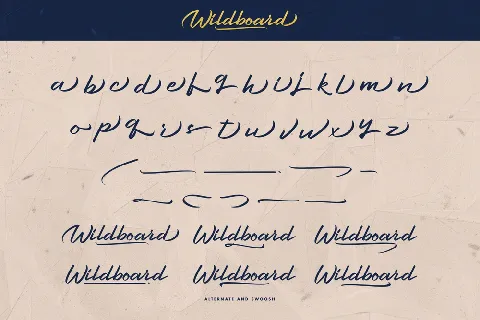 Wildboard
a b c d e f g h i j k l m n
o p q r s t u v w x y z
Wildboard Wildboard Wildboard
Wildboard Wildboard Wildboard
ALTERNATE AND SWOOSH